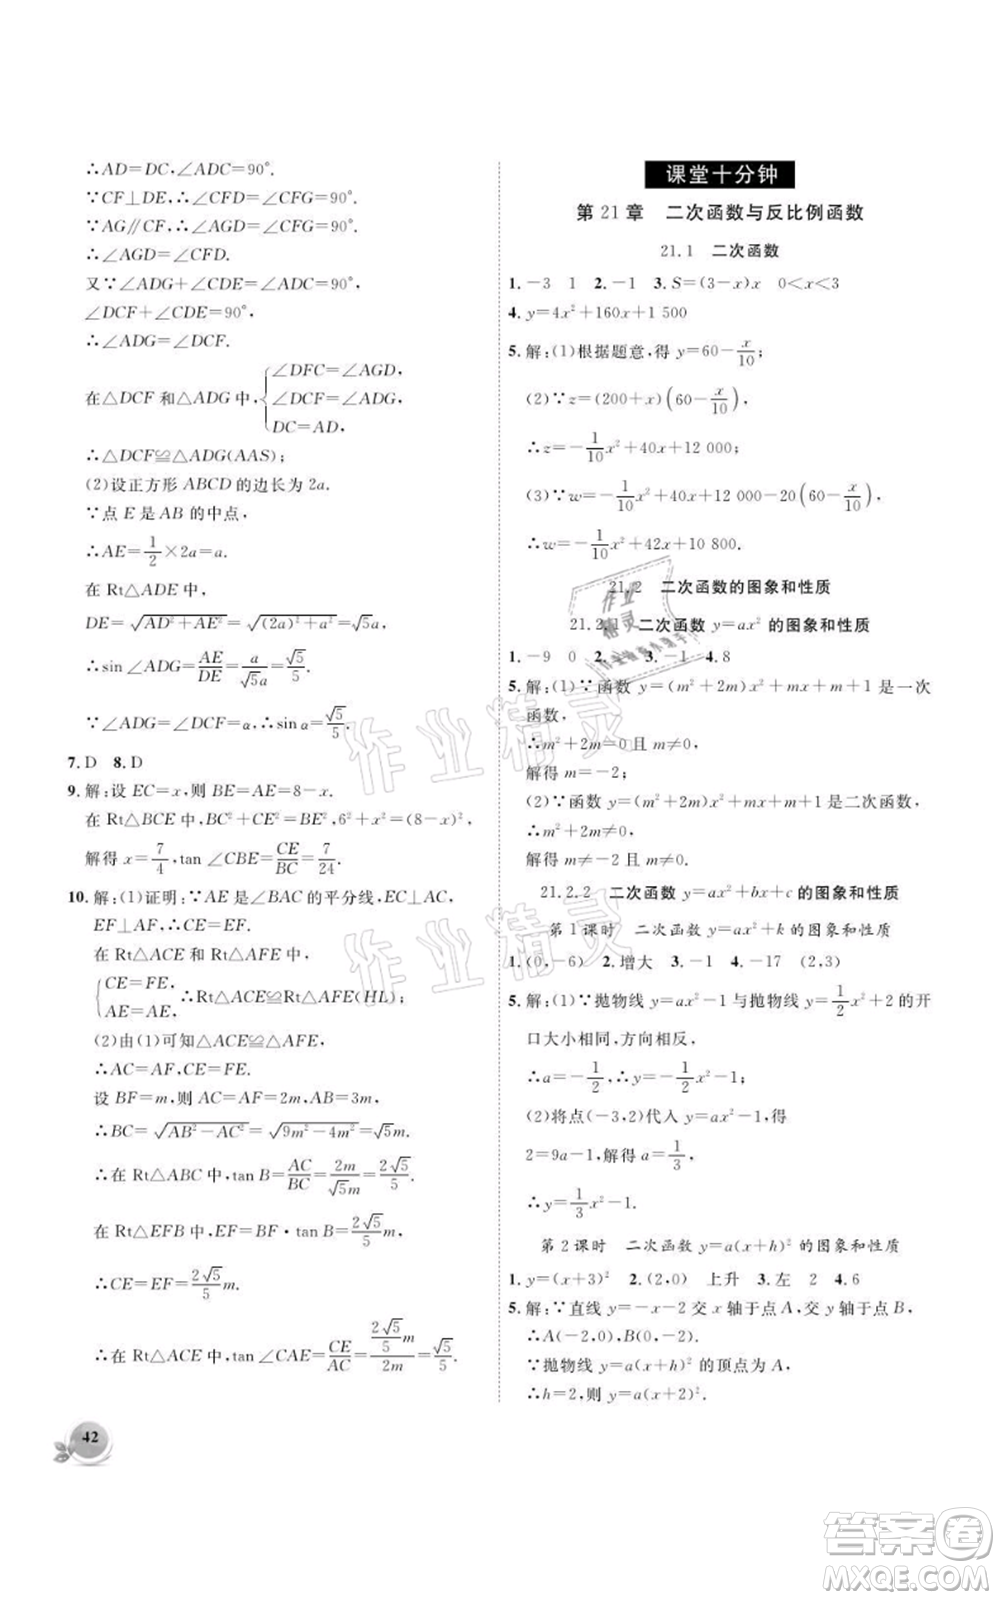 ∴AD=DC,∠ADC=90°.
∵CF⊥DE,∴∠CFD=∠CFG=90°.
∵AG∥CF,∴∠AGD=∠CFG=90°.
∴∠AGD=∠CFD.
又∵∠ADG+∠CDE=∠ADC=90°,
∠DCF+∠CDE=90°,
∴∠ADG=∠DCF.
在△DCF 和△ADG 中,{∠DFC=∠AGD,
∠DCF=∠ADG,
DC=AD,
∴△DCF≌△ADG(AAS);
(2)设正方形 ABCD 的边长为 2a.
∵点 E 是 AB 的中点,
∴AE=1/2×2a=a.
在 Rt△ADE 中,
DE=√(AD²+AE²)=√((2a)²+a²)=√5a,
∴sin∠ADG=AE/DE=a/(√5a)=√5/5.
∵∠ADG=∠DCF=α,∴sin α=√5/5.
7. D 8. D
9. 解:设 EC=x,则 BE=AE=8-x.
在 Rt△BCE 中,BC²+CE²=BE²,6²+x²=(8-x)²,
解得 x=7/4,tan ∠CBE=CE/BC=7/24.
10. 解:(1)证明:∵AE 是∠BAC 的平分线,EC⊥AC,
EF⊥AF,∴CE=EF.
在 Rt△ACE 和 Rt△AFE 中,
{CE=FE,
AE=AE,∴Rt△ACE≌Rt△AFE(HL);
(2)由(1)可知△ACE≌△AFE,
∴AC=AF,CE=FE.
设 BF=m,则 AC=AF=2m,AB=3m,
∴BC=√(AB²-AC²)=√(9m²-4m²)=√5m.
∴在 Rt△ABC 中,tan B=AC/BC=2m/(√5m)=2√5/5.
在 Rt△EFB 中,EF=BF·tan B=2√5/5 m,
∴CE=EF=2√5/5 m.
∴在 Rt△ACE 中,tan ∠CAE=CE/AC=(2√5/5 m)/2m=√5/5.
42
课堂十分钟
第 21 章 二次函数与反比例函数
21.1 二次函数
1. -3 1 2. -1 3. S=(3-x)x 0<x<3
4. y=4x²+160x+1 500
5. 解:(1)根据题意,得 y=60-x/10;
(2)∵z=(200+x)(60-x/10),
∴z=-1/10x²+40x+12 000;
(3)∵w=-1/10x²+40x+12 000-20(60-x/10),
∴w=-1/10x²+42x+10 800.
21.2 二次函数的图象和性质
21.2.1 二次函数 y=ax² 的图象和性质
1. -9 0 2. 3. -1 4. 8
5. 解:(1)∵函数 y=(m²+2m)x²+mx+m+1 是一次
函数,
∴m²+2m=0且 m≠0,
解得 m=-2;
(2)∵函数 y=(m²+2m)x²+mx+m+1 是二次函数,
∴m²+2m≠0,
解得 m≠-2且 m≠0.
21.2.2 二次函数 y=ax²+bx+c 的图象和性质
第 1 课时 二次函数 y=ax²+k 的图象和性质
1. (0,-6) 2. 增大 3. -1 4. -17 (2,3)
5. 解:(1)∵抛物线 y=ax²-1 与抛物线 y=1/2x²+2 的开
口大小相同,方向相反,
∴a=-1/2,∴y=-1/2x²-1;
(2)将点(-3,2)代入 y=ax²-1,得
2=9a-1,解得 a=1/3,
∴y=1/3x²-1.
第 2 课时 二次函数 y=a(x+h)² 的图象和性质
1. y=(x+3)² 2. (2,0) 上升 3. 左 2 4. 6
5. 解:∵直线 y=-x-2 交 x 轴于点 A,交 y 轴于点 B,
∴A(-2,0),B(0,-2).
∵抛物线 y=a(x+h)² 的顶点为 A,
∴h=2,则 y=a(x+2)².
作业精灵
作业精灵
作业精灵
答案卷
MXQE.COM